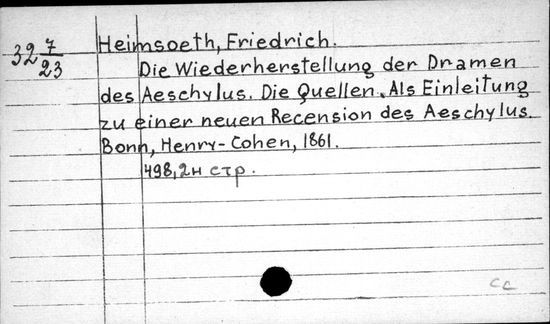 32 7/23
Heimsoeth, Friedrich.
Die Wiederherstellung der Dramen
des Aeschylus. Die Quellen. Als Einleitung
zu einer neuen Recension des Aeschylus.
Bonn, Henry-Cohen, 1861.
498, 2н стр.
cc